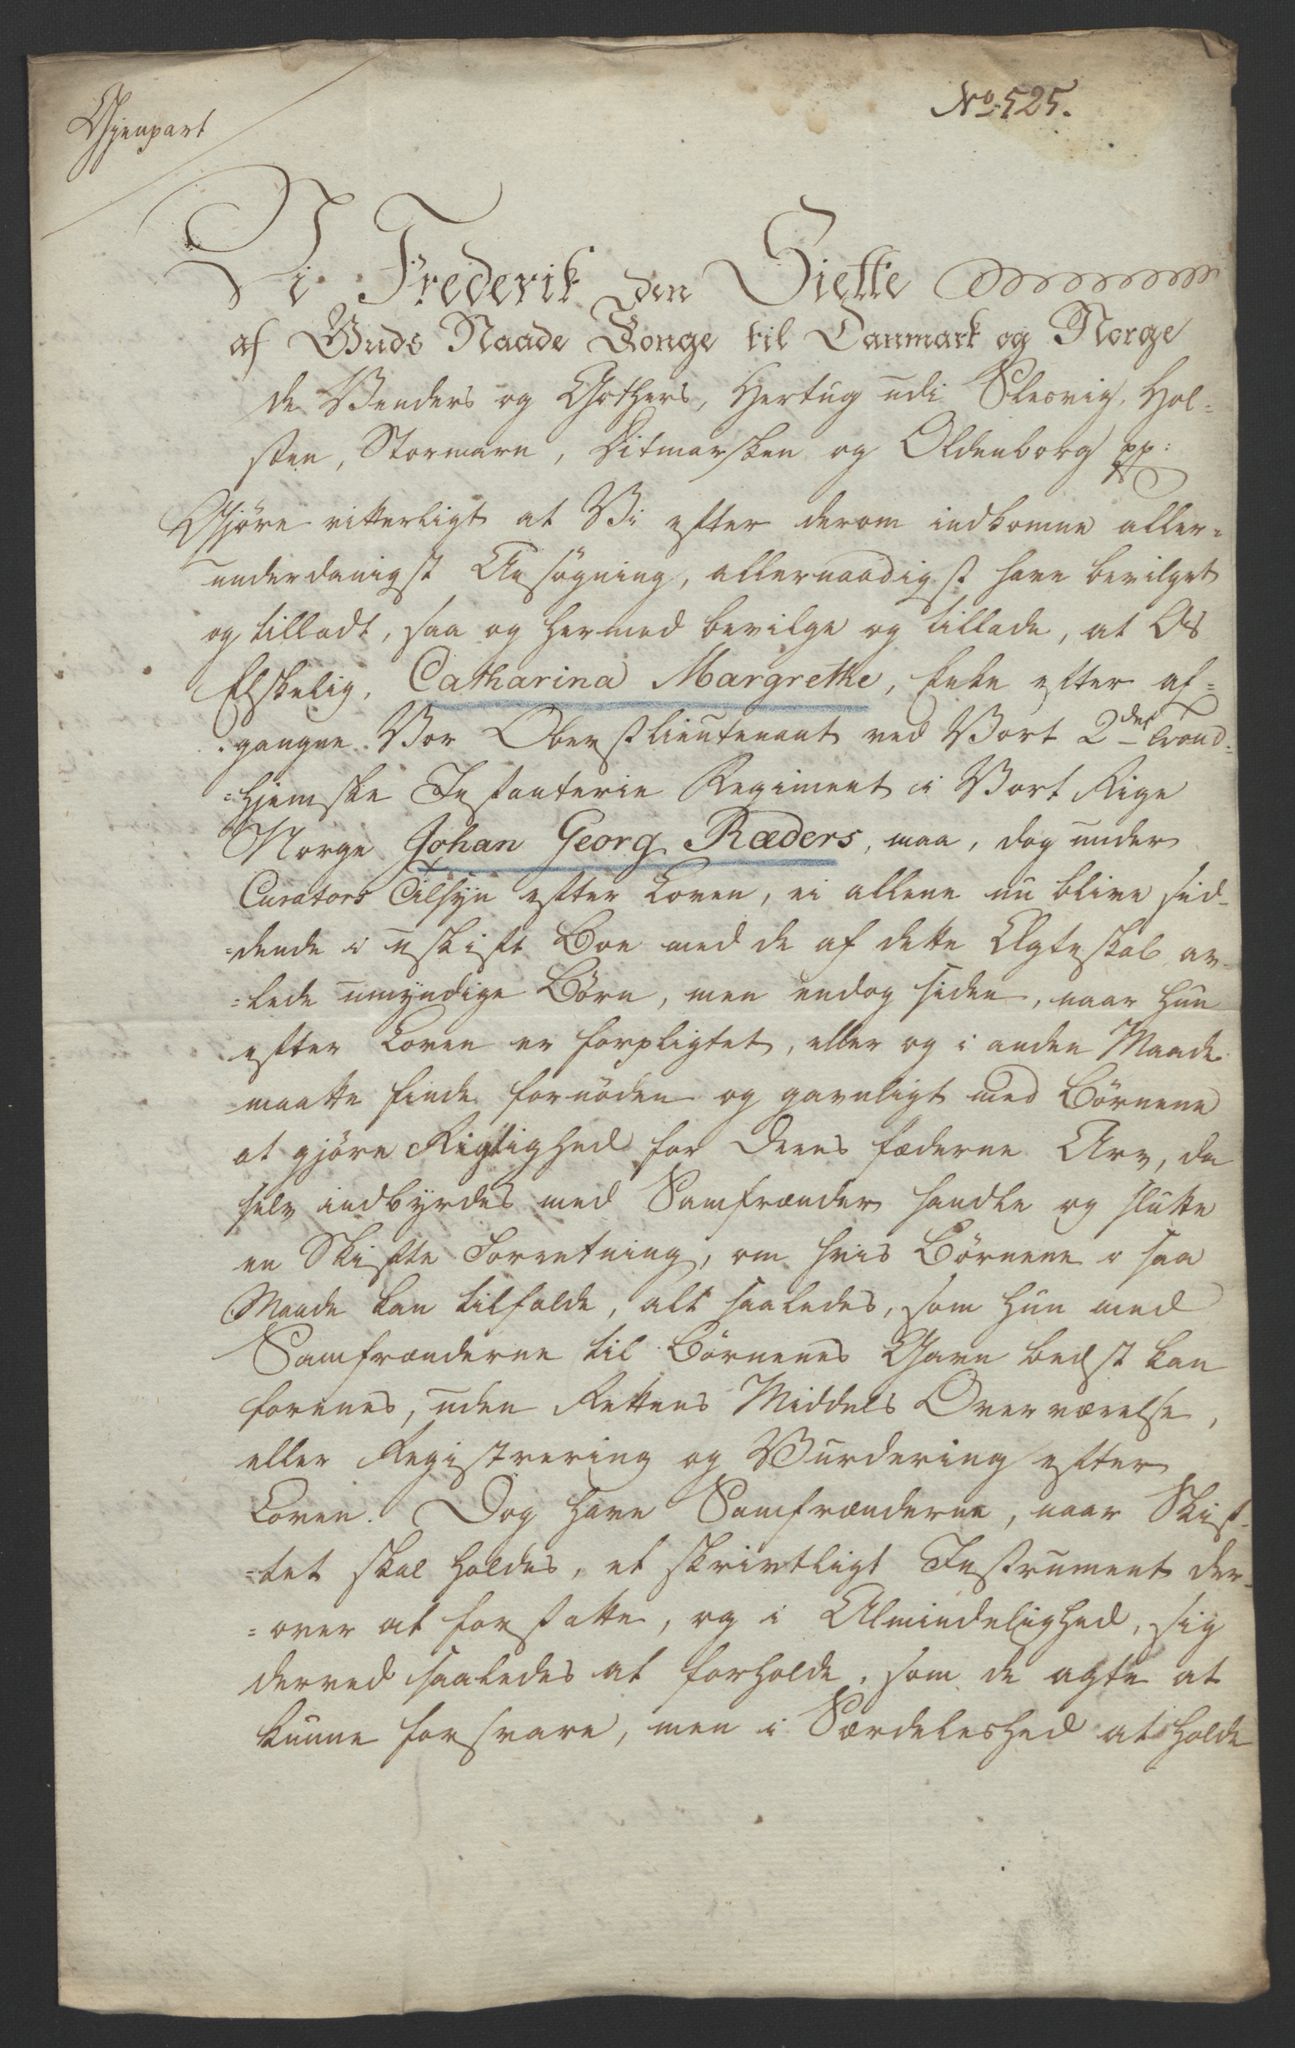 Gjenpart
No. 525.
Vi Frederik den Siette
af Guds Naade Konge til Danmark og Norge
de Venders og Gothers, Hertug udi Slesvig, Hol-
sten, Stormarn, Ditmarsken og Oldenborg pp:
Gjøre vitterligt at Vi efter derom indkomne aller-
underdanigst Ansøgning, allernaadigst have bevilget
og tilladt, saa og hermed bevilge og tillade, at Os
Elskelig, Catharina Margrethe, Enke efter af-
gangne Vor Oberstlieutenant ved Vort 2det Trond-
hjemske Infanterie Regiment i Vort Rige
Norge Johan Georg Ræders, maa, dog under
Curators Tilsyn efter Loven, ei allene nu blive sid-
dende i uskift Boe med de af dette Ægteskab av-
lede umyndige Børn, men endog siden, naar hun
efter Loven er forpligtet, eller og i anden Maade
maatte finde fornøden og gavnligt med Børnene
at gjøre Rigtighed for Deres fæderne Arv, da
selv indbyrdes med Samfrænder handle og slutte
en Skifte Forretning, om hvis Børnene i saa
Maade kan tilfalde, alt saaledes, som hun med
Samfrænderne til Børnenes Gavn bedst kan
forenes, uden Rettens Middels Overværelse,
eller Registrering og Vurdering efter
Loven. Dog have Samfrænderne, naar Skif-
tet skal holdes, et skrivtligt Instrument der-
over at forfatte, og i Almindelighed, sig
derved saaledes at forholde, som de agte at
kunne forsvare, men i Særdeleshed at holde